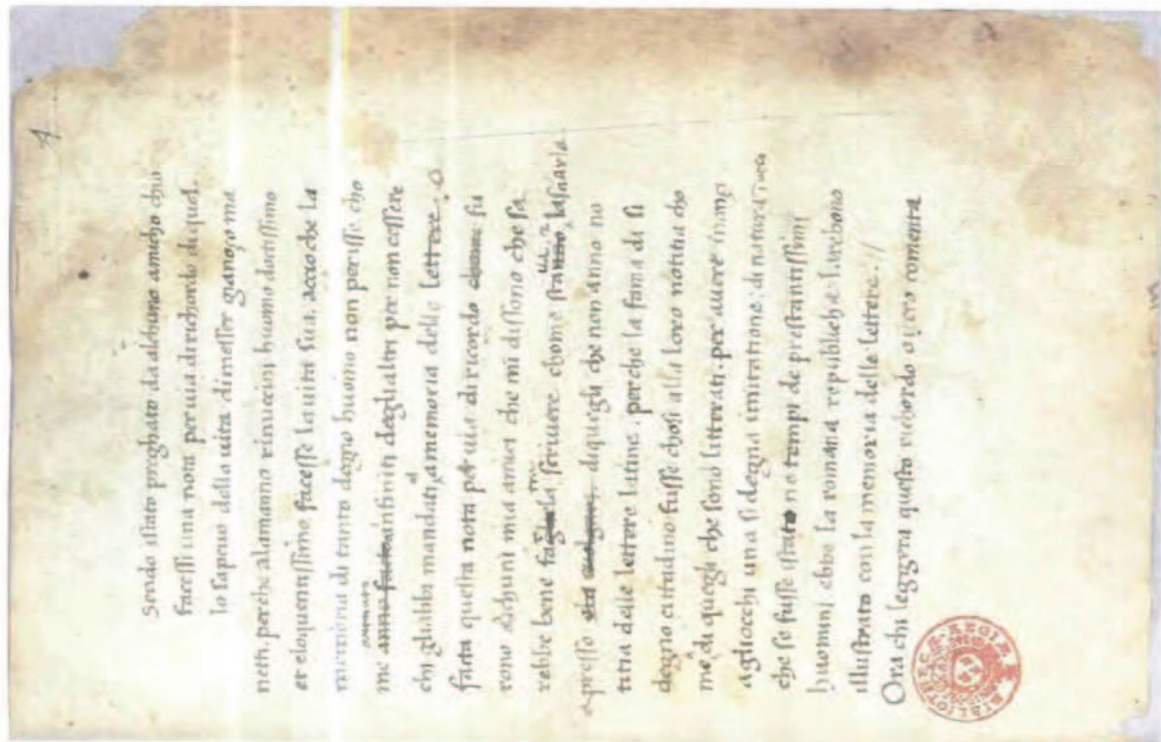 4
Sendo istato preghato da alchuno amicho ch'io
facessi una nota per via di richordo di quel
lo sapevo della vita di messer gianozo ma
netti, perche alamanno rinuccini huomo dottissimo
et eloquentissimo facesse la vita sua. accio che la
memoria di tanto degno huomo non perisse cho
me infiniti degli altri per non essere
chi gli abbi mandati a memoria delle lettere. O
fatta questa nota per via di ricordo fu
rono alchuni mia amici che mi dissono che sa
rebbe bene scrivere chome lasciarla
apresso di quegli che non anno no
titia delle lettere latine, perche la fama di si
degno cittadino fusse chosi alla loro notitia cho
me di quegli che sono litterati. per avere inanzi
agli occhi una si degna imitatione: di natura
che se fusse istato ne tempi de prestantissimi
huomini ebbe la romana republicha: l'arebono
illustrato con la memoria delle lettere. //
Ora chi leggera questo richordo o vero comenta